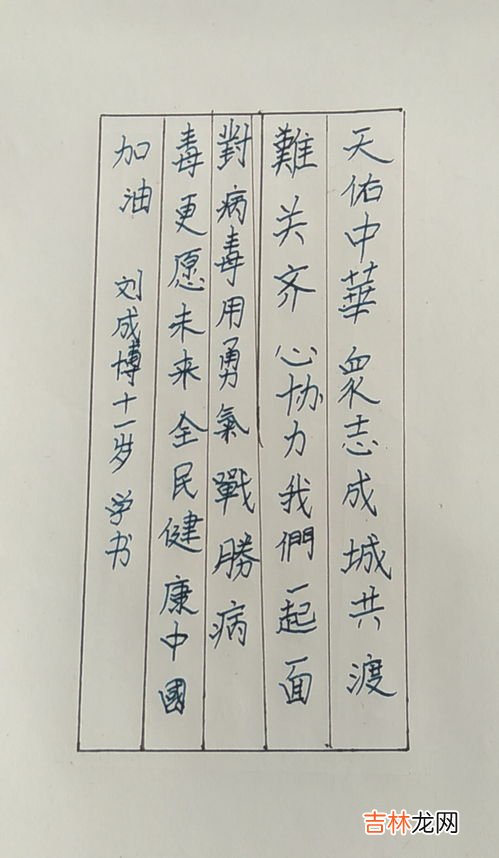 天佑中華衆志成城共渡
難关齐心协力我們一起面
對病毒用勇氣戰勝病
毒更愿未来全民健康中國
加油 刘成博十一岁学书
吉林龙网